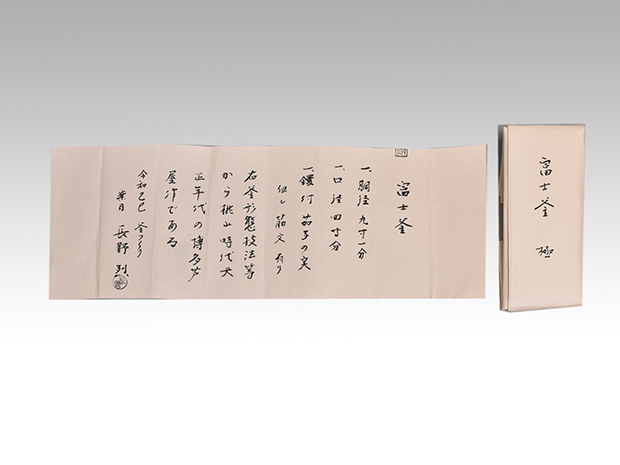 富士釜
一、胴径 九寸一分
一、口径 四寸分
一、鐶付 茄子の実
但し 筋文 有り
右釜形態技法等
から桃山時代天
正年代の博多芦
屋作である
令和乙巳 釜つくり
葉月 長野 烈
富士釜 極